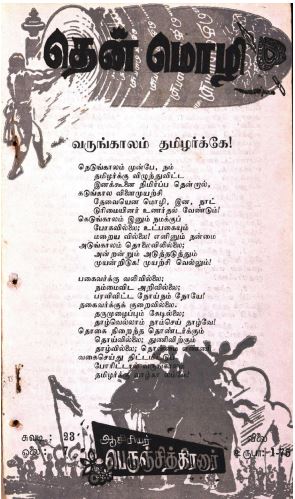 தென் மொழி
வருங்காலம் தமிழர்க்கே!
நெடுங்காலம் முன்பே, நம்
தமிழர்க்கு விழுந்துவிட்ட
இனக்கூனை நிமிர்ப்ப தென்றால்,
கடுங்கால வினைமுயற்சி
தேவையென மொழி, இன, நாட்
டுரிமையினர் உணர்தல் வேண்டும்!
கெடுங்காலம் இனும் நமக்குப்
போகவில்லை; உட்பகையும்
மறைய வில்லை! எனினும் நன்மை
அடுங்காலம் தொலைவிலில்லை;
அன்றன்றும் அடுத்தடுத்தும்
முயன்றிடுக! முயற்சி வெல்லும்!
பகைவர்க்கு வலிவில்லை;
நம்மைவிட அறிவில்லை;
பரவிவிட்ட நோய்தம் நோயே!
தகைவர்க்குக் குறைவில்லை;
தருமுழைப்பும் கேடில்லை;
தாழ்வெல்லாம் நாம்செய் தாழ்வே!
தொகை நிறைந்த தொண்டர்க்கும்
தொய்வில்லை; துணிவிற்கும்
தாழ்வில்லை;
வகைசெய்து திட்டமிட்டுப்
போரிட்டால்
தமிழர்க்கு
சுவடி : 23
ஓலை : 7
ஆசிரியர்
பெருஞ்சித்திரனார்
விலை
உருபா: 1-75